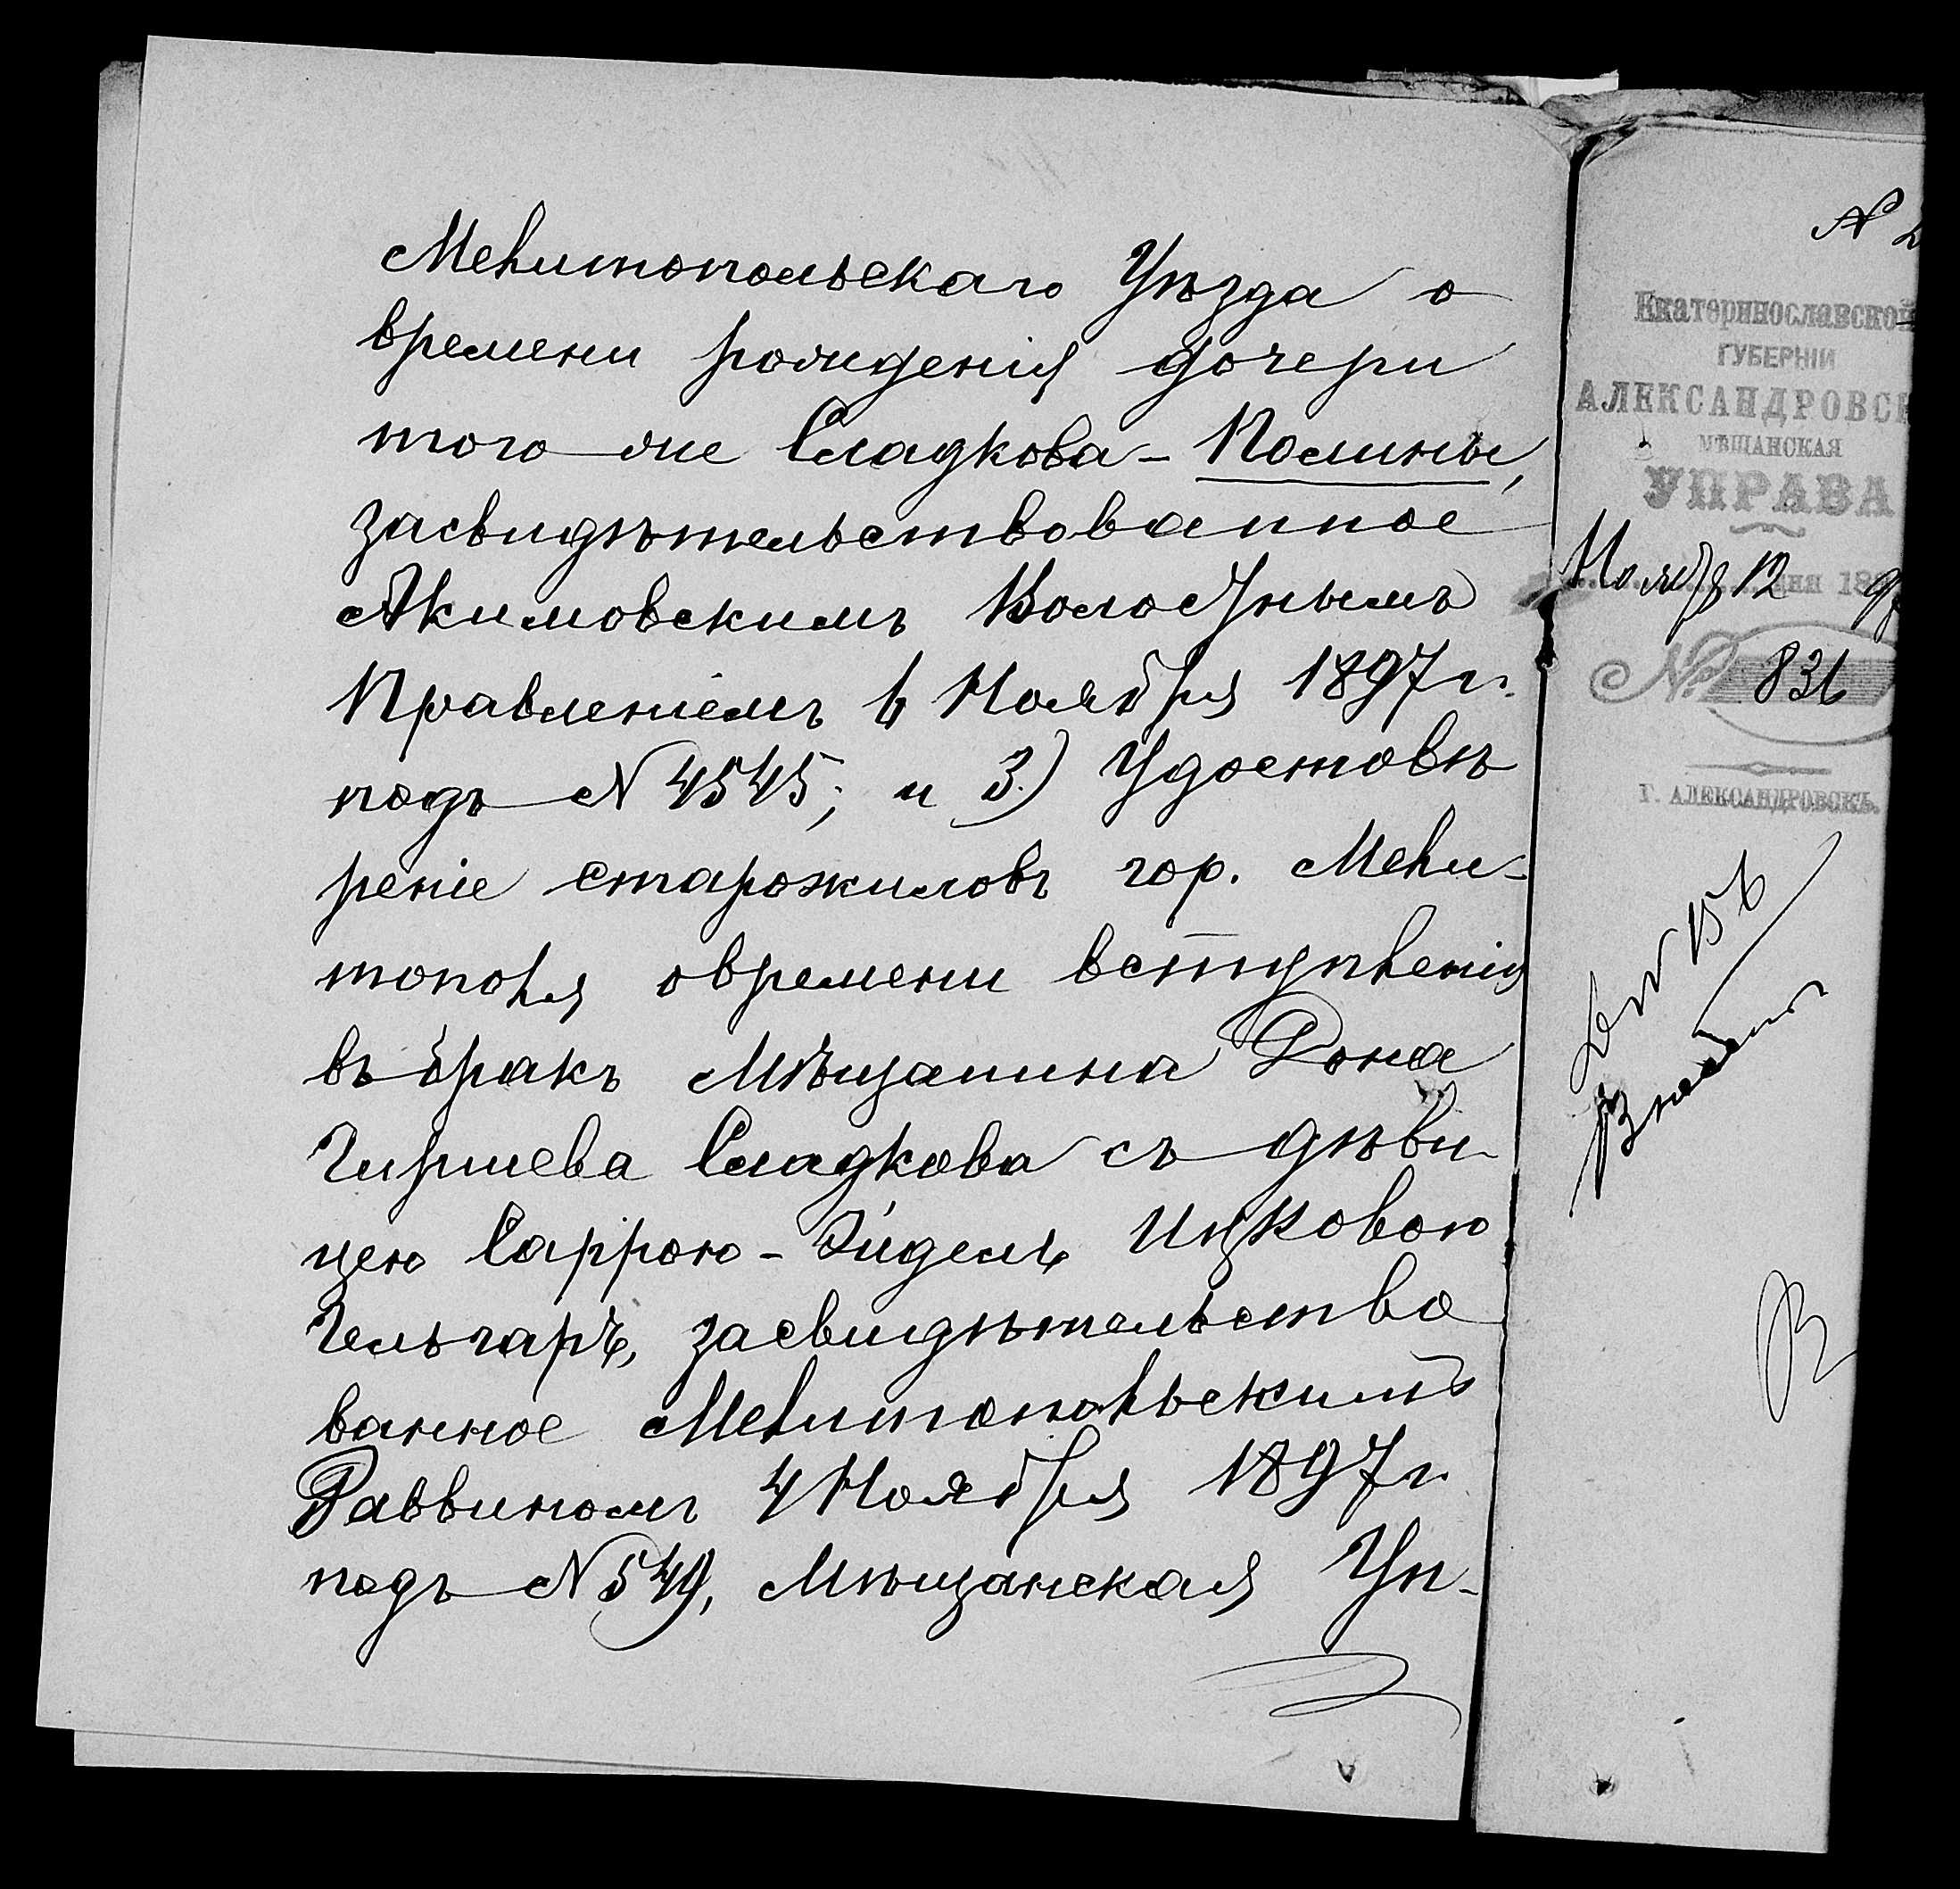 Мелитопольскаго Уѣзда о
времени рожденія дочери
того же Сладкова - Полины,
засвидѣтельствованное
Акимовскимъ Волостнымъ
Правленіемъ 6 Ноября 1897 г.
подъ № 4545; и 3.) Удостовѣ
реніе старожиловъ гор. Мели-
тополя о времени вступленія
въ бракъ Мѣщанина Рона
Гиршева Сладкова съ дѣви-
цею Саррою - Эйдель Ицковою
Гельгаръ, засвидѣтельство
ванное Мелитопольскимъ
Раввиномъ 4 Ноября 1897 г.
подъ № 549, Мѣщанская Уп-
№
Екатеринославской
ГУБЕРНІИ
АЛЕКСАНДРОВСК
МѢЩАНСКАЯ
УПРАВА
Ноября 12 дня 189
№ 836
Г. АЛЕКСАНДРОВСКЪ.